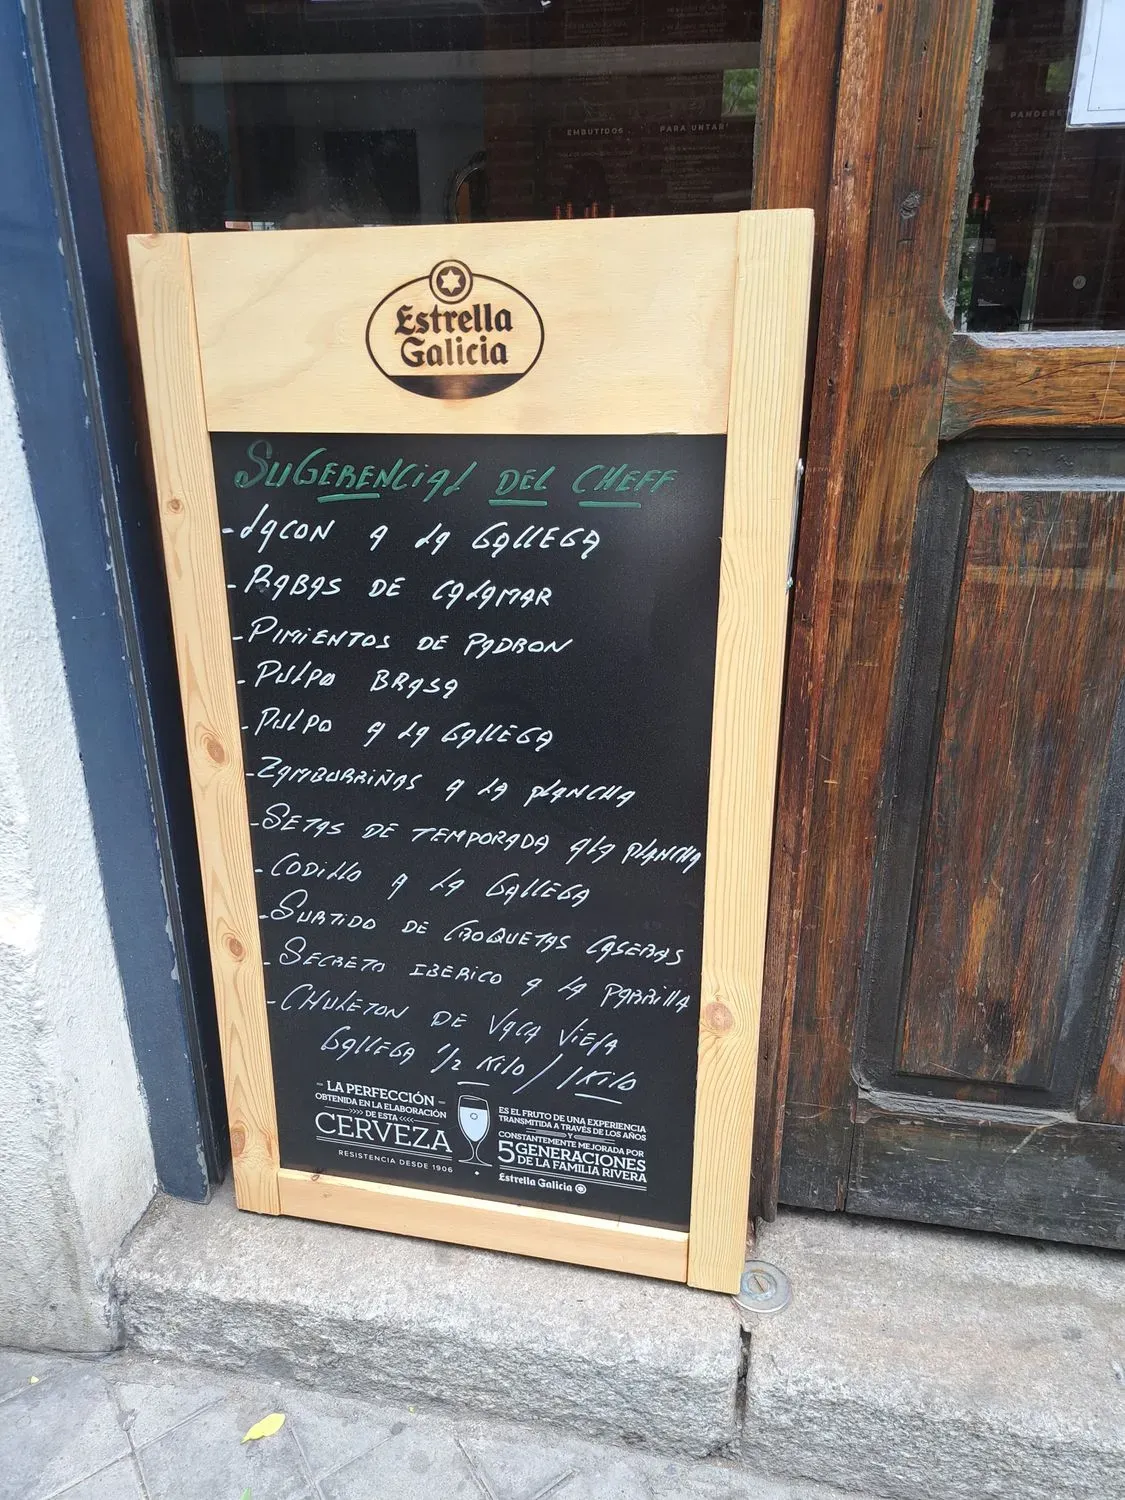 EMBUTIDOS
PARA UNTAR
Estrella
Galicia
SUGERENCIAS DEL CHEFF
-LACON A LA GALLEGA
-RABAS DE CALAMAR
-PIMIENTOS DE PADRON
-PULPO BRASA
-PULPO A LA GALLEGA
-ZAMBURRIÑAS A LA PLANCHA
-SETAS DE TEMPORADA A LA PLANCHA
-CODILLO A LA GALLEGA
-SURTIDO DE CROQUETAS CASERAS
-SECRETO IBERICO A LA PARRILLA
-CHULETON DE VACA VIEJA
GALLEGA 1/2 KILO / 1 KILO
- LA PERFECCIÓN -
OBTENIDA EN LA ELABORACIÓN
»»» DE ESTA «««
CERVEZA
RESISTENCIA DESDE 1906
ES EL FRUTO DE UNA EXPERIENCIA
TRANSMITIDA A TRAVÉS DE LOS AÑOS
Y
CONSTANTEMENTE MEJORADA POR
5 GENERACIONES
DE LA FAMILIA RIVERA
Estrella Galicia